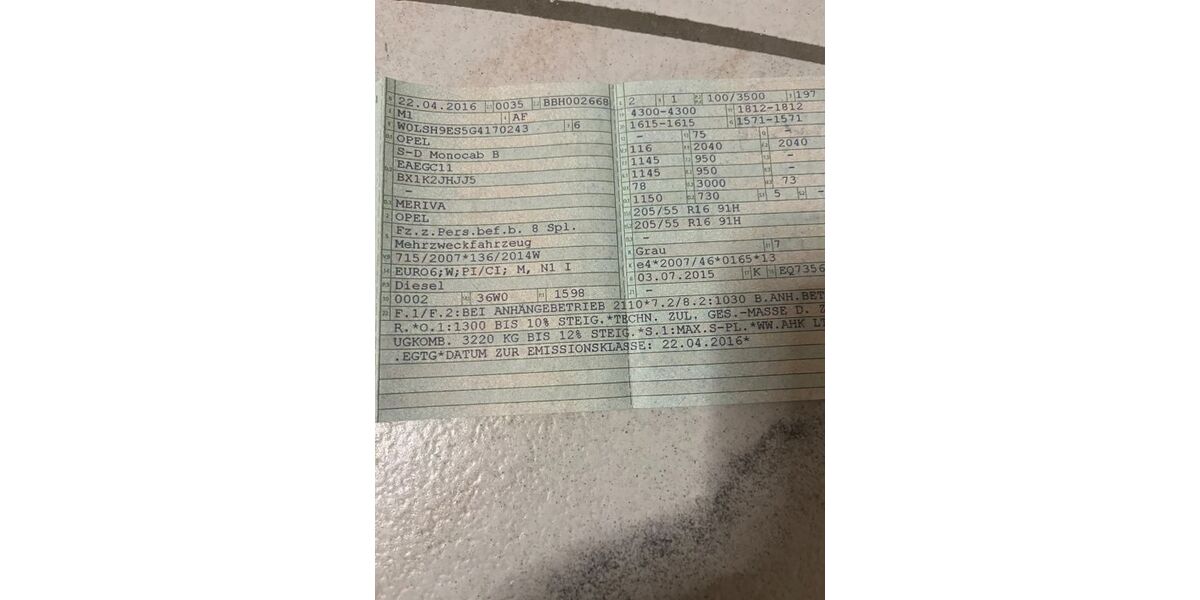 22.04.2016 0035 BBH002668 2 1 100/3500 197
M1 AF 4300-4300 1812-1812
W0LSH9ES5G4170243 6 1615-1615 1571-1571
OPEL - 75 -
S-D Monocab B 116 2040 2040
EAEGC11 1145 950 -
BX1K2JHJJ5 1145 950 -
- 78 3000 73
MERIVA 1150 730 5 -
OPEL 205/55 R16 91H
Fz.z.Pers.bef.b. 8 Spl. 205/55 R16 91H
Mehrzweckfahrzeug -
715/2007*136/2014W Grau 7
EURO6;W;PI/CI; M, N1 I e4*2007/46*0165*13
Diesel 03.07.2015 K EQ7356
0002 36W0 1598 -
F.1/F.2:BEI ANHÄNGEBETRIEB 2110*7.2/8.2:1030 B.ANH.BET
R.*O.1:1300 BIS 10% STEIG.*TECHN. ZUL. GES.-MASSE D. Z
UGKOMB. 3220 KG BIS 12% STEIG.*S.1:MAX.S-PL.*WW.AHK LT
.EGTG*DATUM ZUR EMISSIONSKLASSE: 22.04.2016*